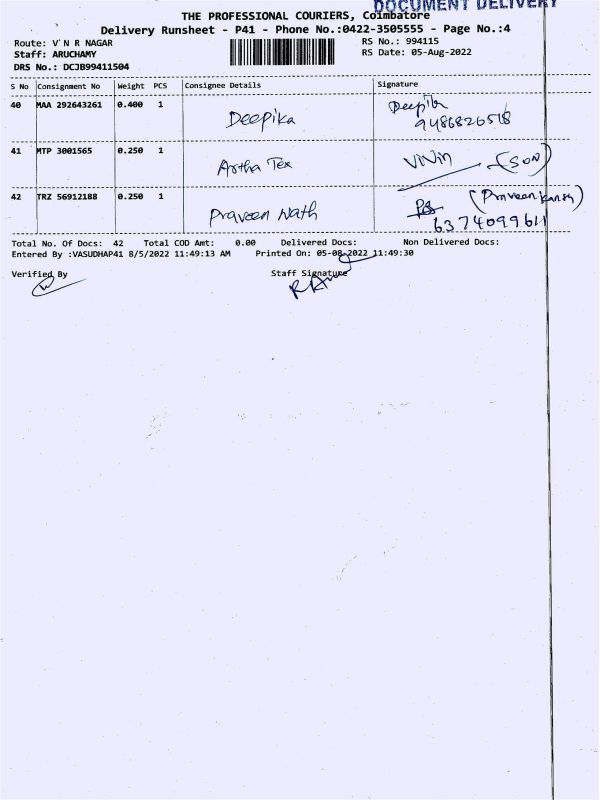 DOCUMENT DELIVERY
THE PROFESSIONAL COURIERS, Coimbatore
Delivery Runsheet - P41 - Phone No.:0422-3505555 - Page No.:4
Route: V N R NAGAR
RS No.: 994115
Staff: ARUCHAMY
RS Date: 05-Aug-2022
DRS No.: DCJB99411504
S No Consignment No Weight PCS Consignee Details Signature
40 MAA 292643261 0.400 1 Deepika Deepika
9486826518
41 MTP 3001565 0.250 1 Artha Tex ViVin (SON)
42 TRZ 56912188 0.250 1 Praveen Nath
6374099611
Total No. Of Docs: 42 Total COD Amt: 0.00 Delivered Docs: Non Delivered Docs:
Entered By :VASUDHAP41 8/5/2022 11:49:13 AM Printed On: 05-08-2022 11:49:30
Verified By Staff Signature